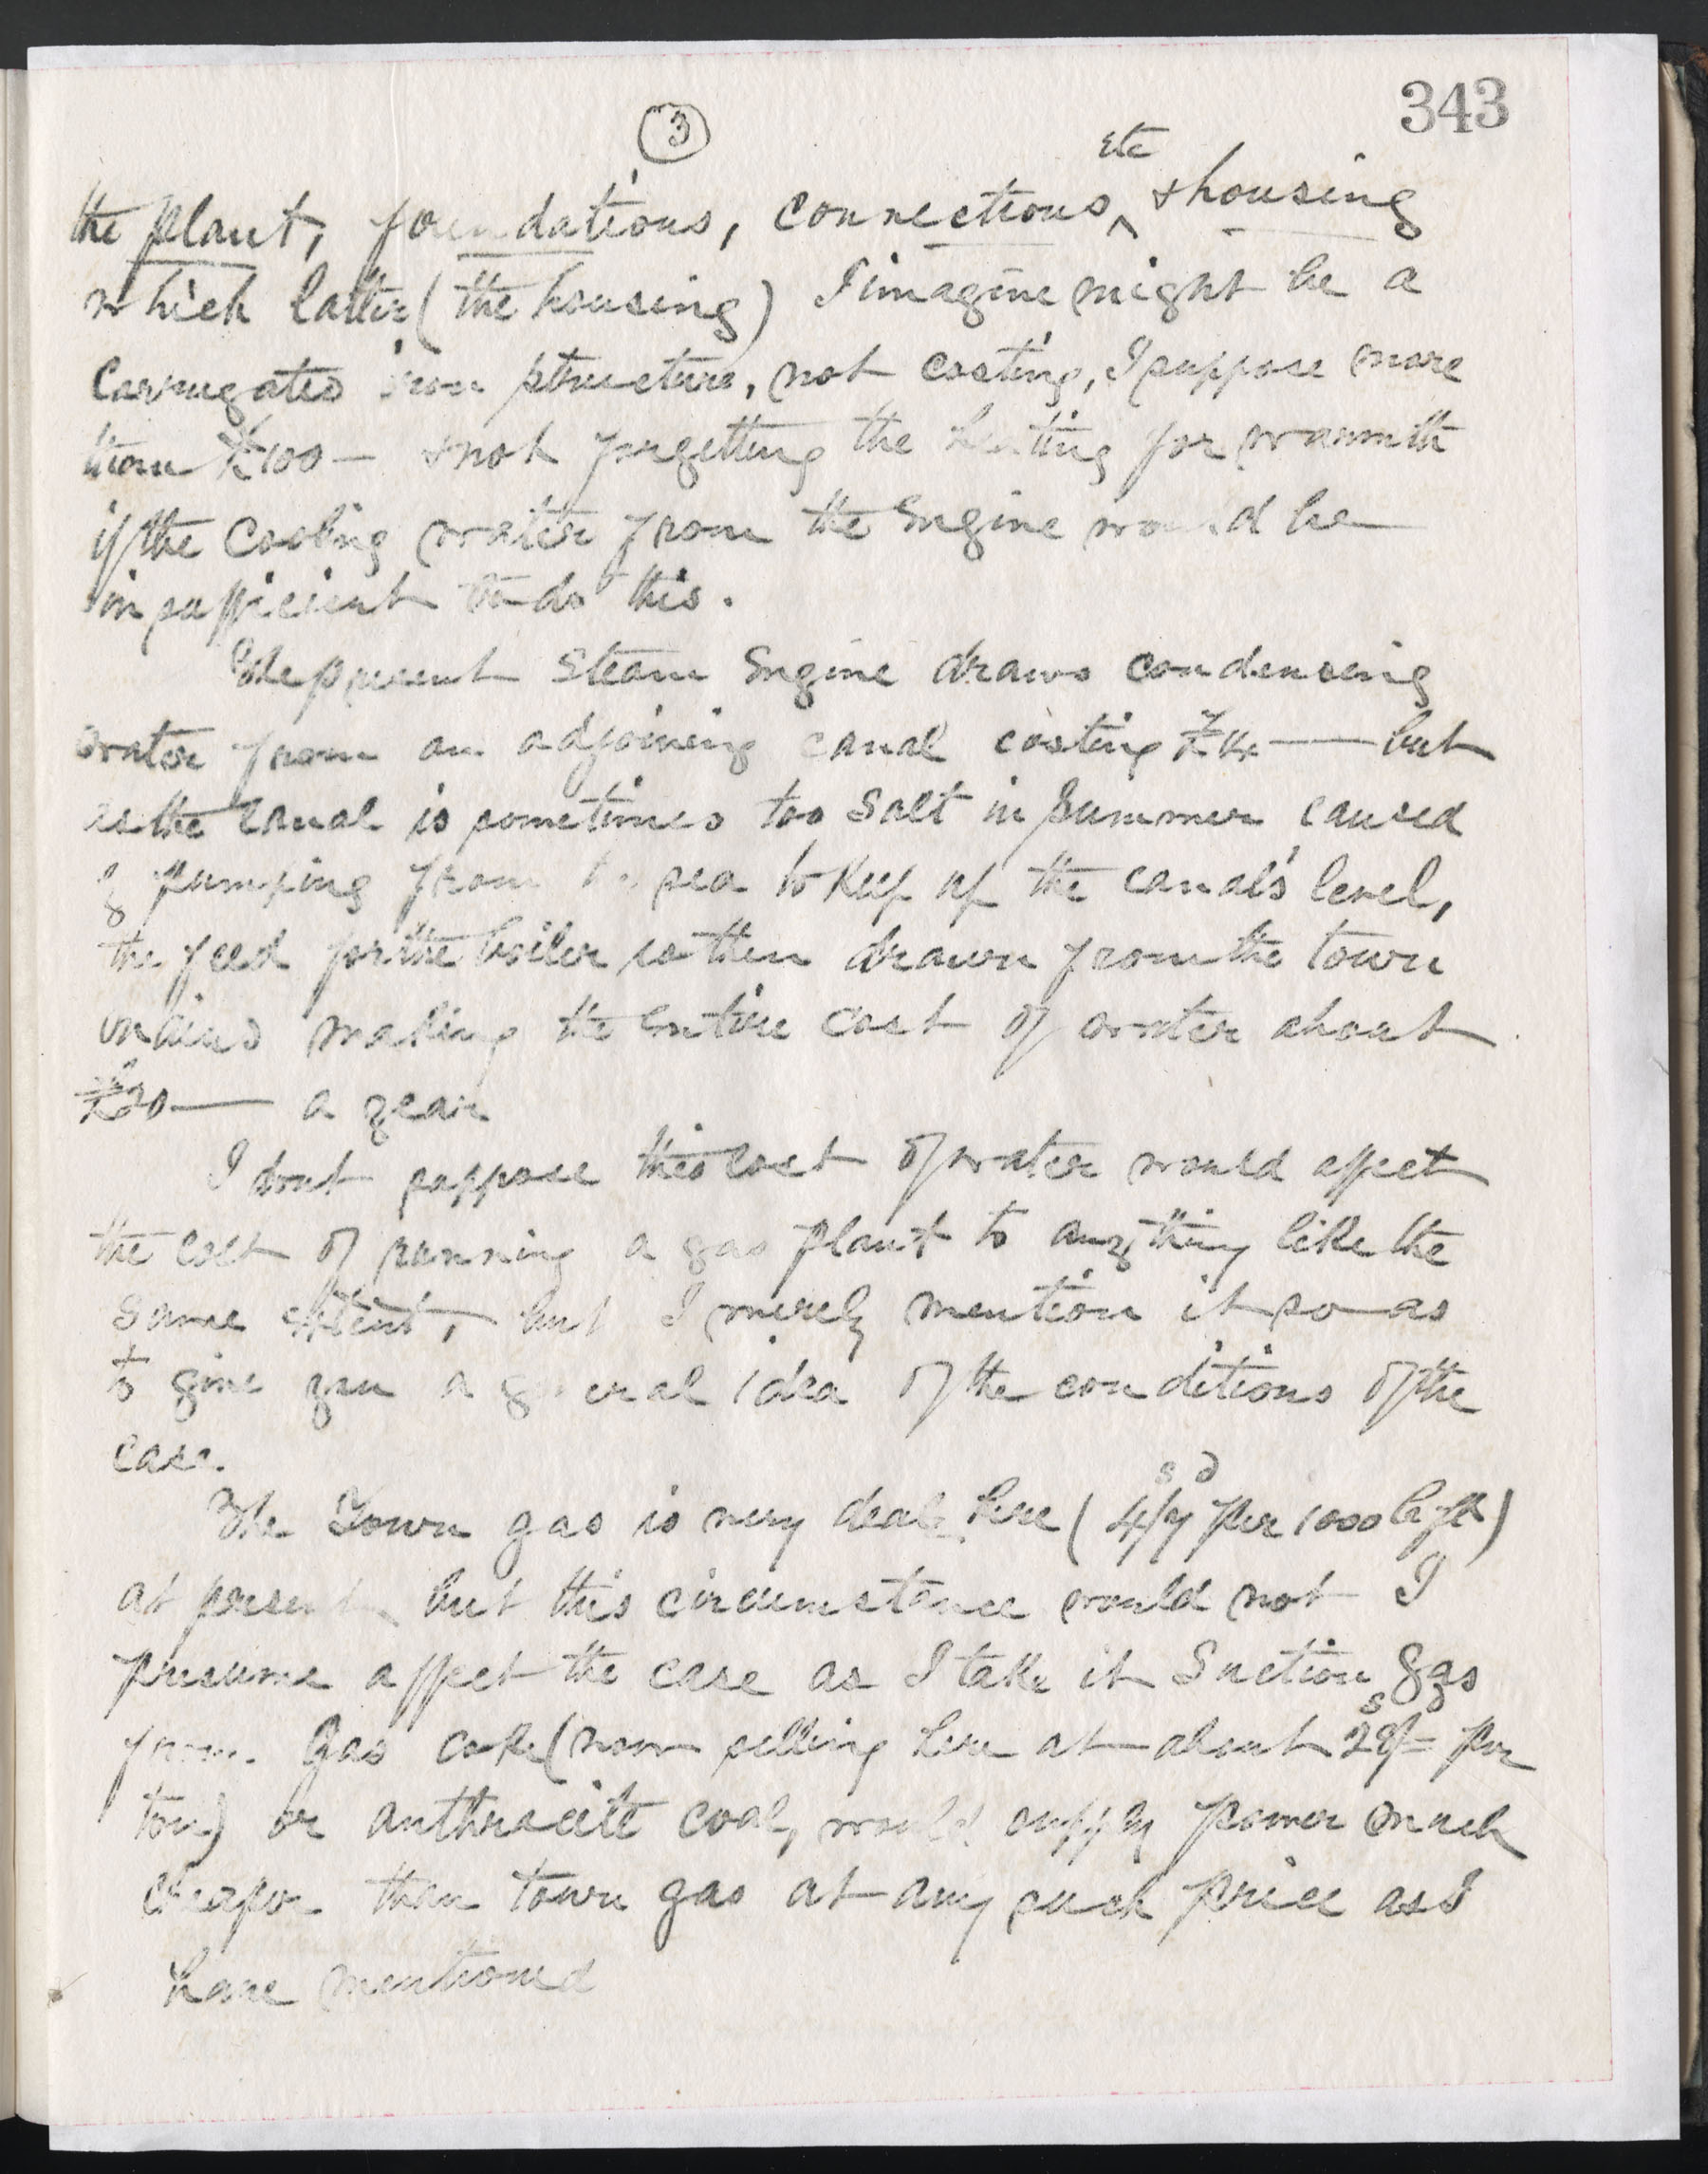 343
3
the plant, foundations, connections, etc & housing
which latter (the housing) I imagine might be a
Corrugated iron structure, not costing, I suppose more
than £100 — & not forgetting the heating for warmth
if the Cooling water from the Engine would be
insufficient to do this.
The present Steam Engine draws condensing
water from an adjoining canal costing — but
as the canal is sometimes too Salt in Summer caused
by pumping from the sea to keep up the canal's level,
the feed for the boiler is then drawn from the town
mains making the entire cost of water about
£20 — a year
I dont suppose this cost of water would affect
the cost of running a gas plant to anything like the
same extent, but I merely mention it so as
to give you a general idea of the conditions of the
case.
The Town gas is very dear here ( per 1000 c. ft)
at present but this circumstance would not I
presume affect the case as I take it Suction gas
from Gas coke (now selling here at about per
ton) or anthracite coal, would supply power much
cheaper than town gas at any such price as I
have mentioned